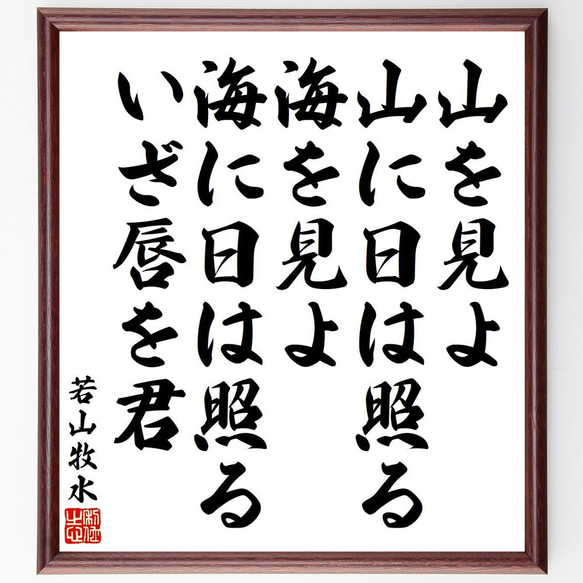 山を見よ
山に日は照る
海を見よ
海に日は照る
いざ唇を君
若山牧水